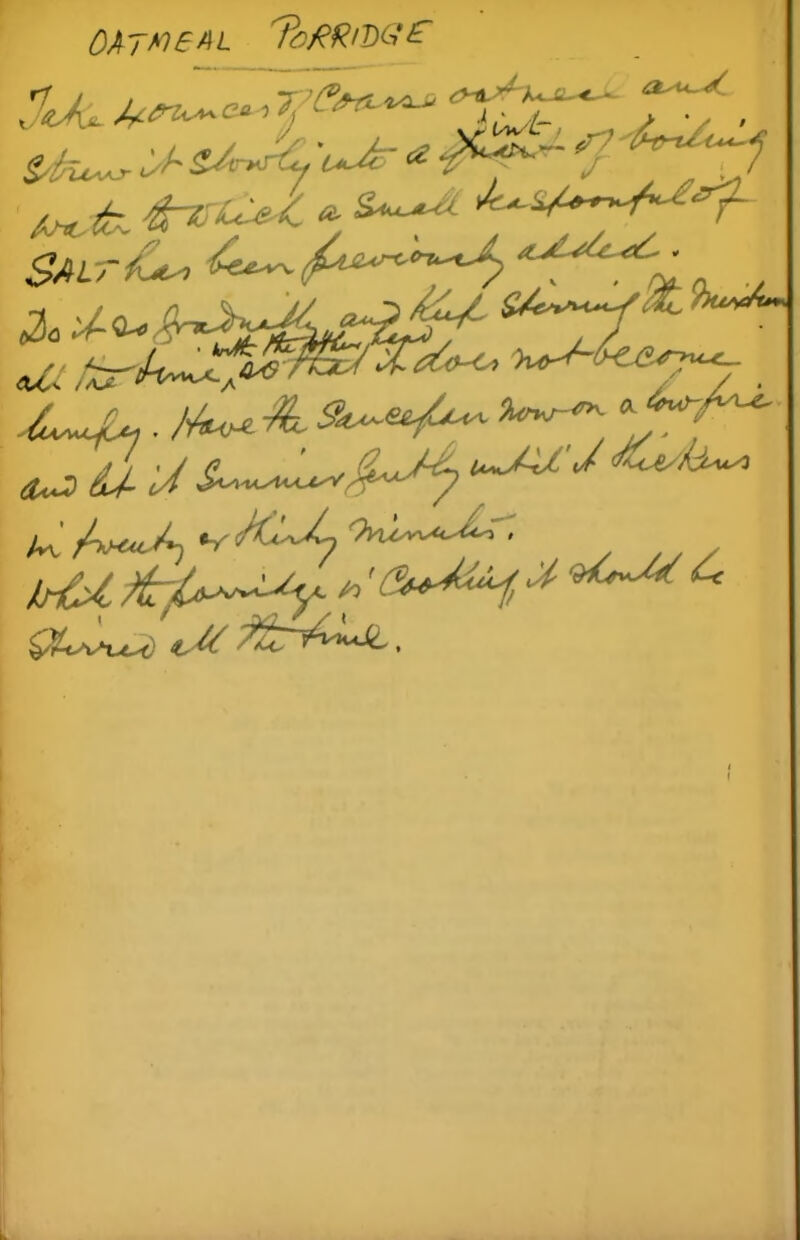 OATMEAL PORRIDGE
Take 4 ounces of Coarse oatmeal and
Strew it Slowly into a pint of boiling
water to which a Small teaspoonful of
SALT has been previously added.
Do it Gradually and keep Stirring the mixture
all the time, with the so that it does not become
lumpy. Have the Saucepan now on a hot plate
and let it Simmer gently until it thickens
in twenty or thirty minutes.
With the porridge is Cooking it should be
Stirred all the time.